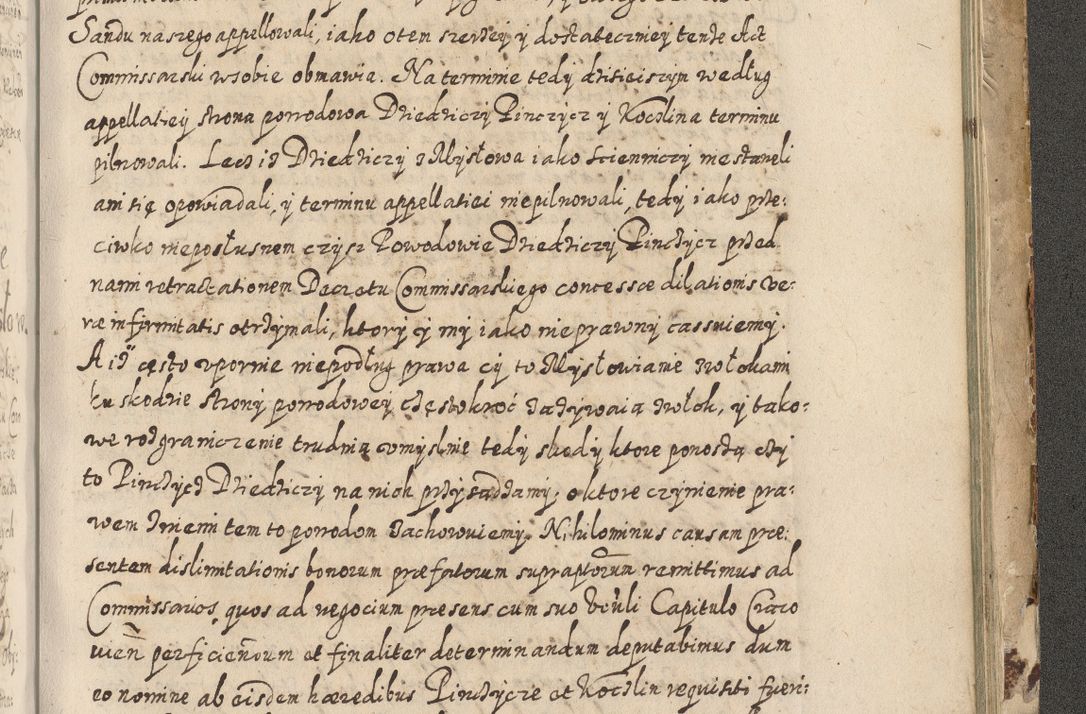 Sandu naszego appellowali, iako otem szerzey y dostateczniey tenże Act
Commissarski wsobie obmawia. Na terminie tedy dzisieiszym według
appellatiey strona powodowa Dziedziczy Pinczycz y Koczlina terminu
pilnowali. Lecz iż Dziedziczy z Mysłowa iako Scienniczy nie staneli
ani się opowiadali, y terminu appellatiei niepilnowali, tedy iako prze:
ciwko nieposłusnem czysz Powodowie Dziedziczy Pinczycz przed
nami retractationem Decretu Commissarskiego concessæ dilationis ve:
ræ infirmitatis otrzymali, ktory y my iako nieprawny cassuiemy.
A iż często vpornie niepodług prawa cy to Mysłowianie zwłokami
ku skodzie strony powodowey częstokroć zażywaią zwłok, y tako:
we rozgraniczenie trudnią vmyslnie tedy skody ktore ponoszą czy
to Pinczycz Dziedziczy na nich przysądzamy, o ktore czynienie pra:
wem zniemi tem to powodom zachowuiemy. Nihilominus causam præ:
sentem dislimitationis bonorum præfatorum supraptorum remittimus ad
Commissarios, quos ad negocium præsens cum suo Vbli Capitulo Craco
uien perficiendum et finaliter determinandum deputabimus dum
eo nomine ab eisdem hæredibus Pinczycze et Koczlin requisiti fueri: